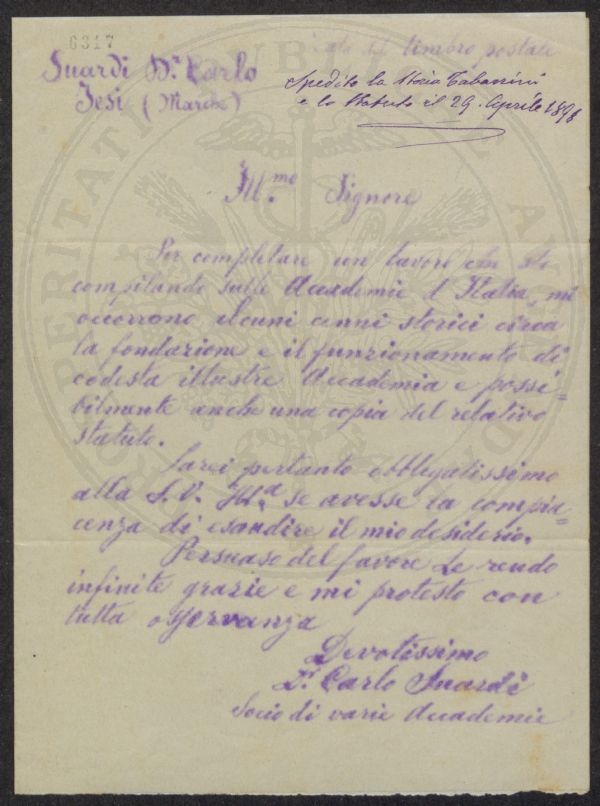 6317
Data del timbro postale
Suardi Dr. Carlo
Jesi (Marche)
Spedito la Storia Tabarrini
e lo Statuto il 29. Aprile 1898
Ill.mo Signore
Per completare un lavoro che sto
compilando sulle Accademie d'Italia, mi
occorrono alcuni cenni storici circa
la fondazione e il funzionamento di
codesta illustre Accademia e possi=
bilmente anche una copia del relativo
statuto.
Sarei pertanto obbligatissimo
alla S.V. Ill.a se avesse la compia=
cenza di esaudire il mio desiderio.
Persuaso del favore Le rendo
infinite grazie e mi protesto con
tutta osservanza
Devotissimo
Dr. Carlo Suardi
Socio di varie Accademie
PROSPERITATI PUBLICAE AUGENDAE